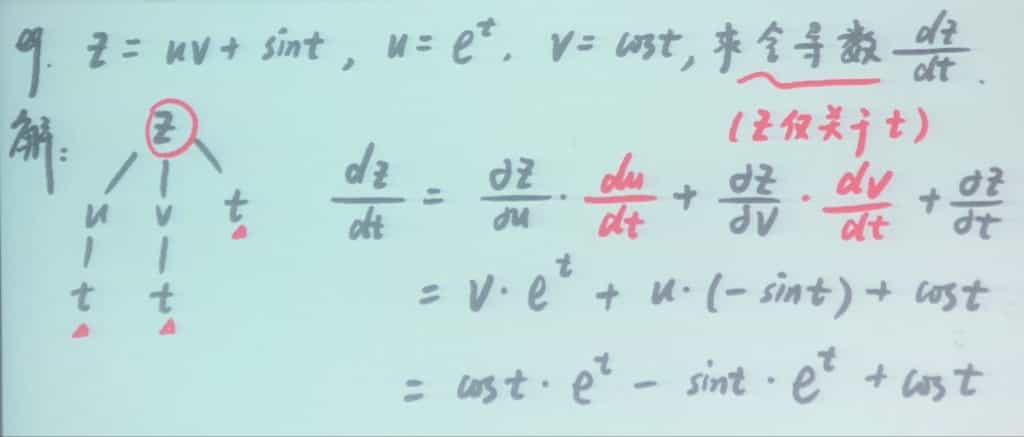 eg. z = uv + sint, u = e^t, v = cost, 求全导数 dz/dt.
(z仅关于t)
解:
z
u v t
t t
dz/dt = ∂z/∂u · du/dt + ∂z/∂v · dv/dt + ∂z/∂t
= v · e^t + u · (- sint) + cost
= cost · e^t - sint · e^t + cost